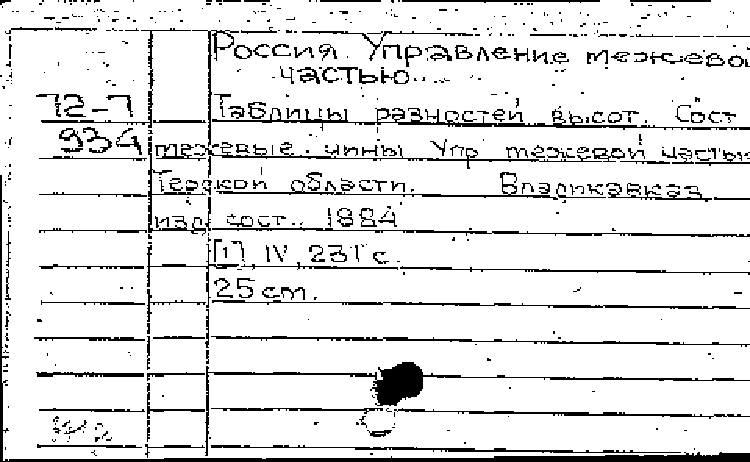 Россия. Управление межевой
частью...
72-7
Таблицы разностей высот. Сост
934
межевые чины Упр межевой частью
Терской области. Владикавказ,
изд. сост., 1884
[1], IV, 231 с.
25 см.